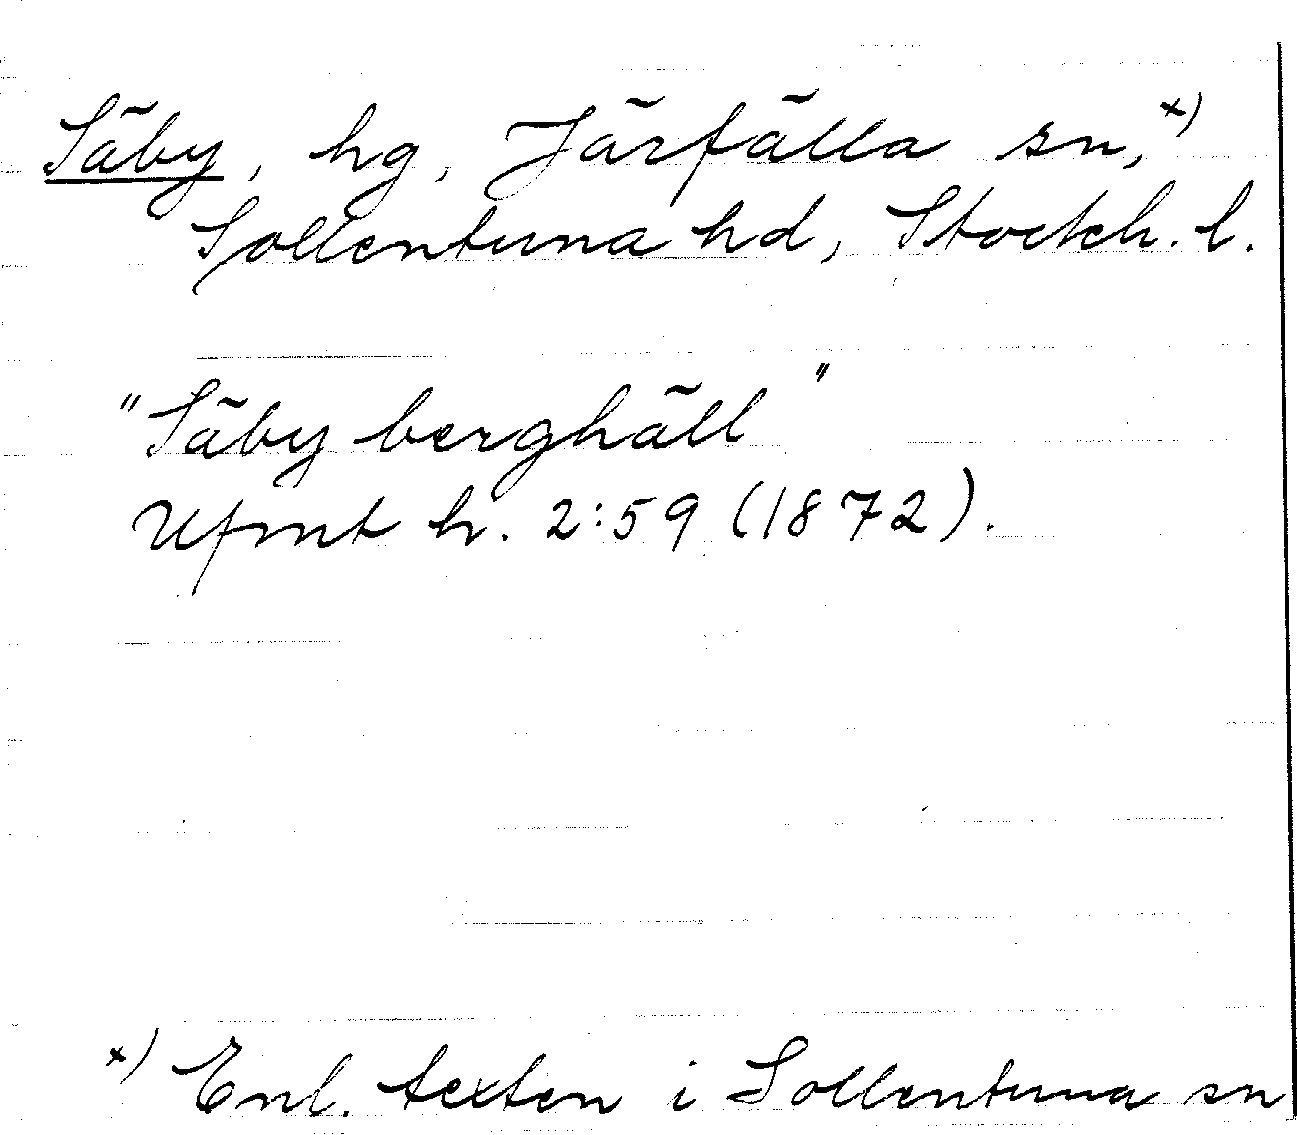 Säby, hg, Järfälla sn,x)
Sollentuna hd, Stockh. l.
"Säby berghäll"
Ufmt h. 2:59 (1872).
x) Enl. texten i Sollentuna sn